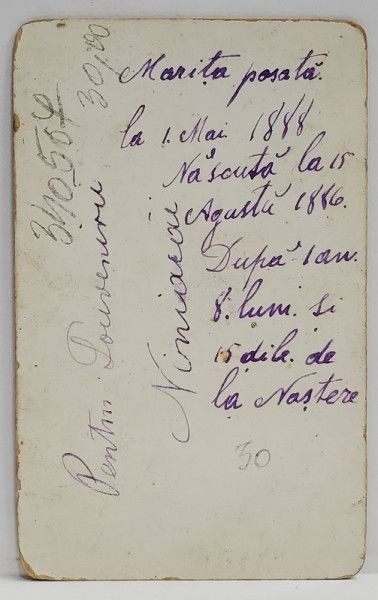 Marița posată.
la 1. Mai 1888
Născută la 15
Agustŭ 1886.
După 1 an.
8. luni. și
15 dile. de
la Naștere
Pentru Souvenire
30,00
30